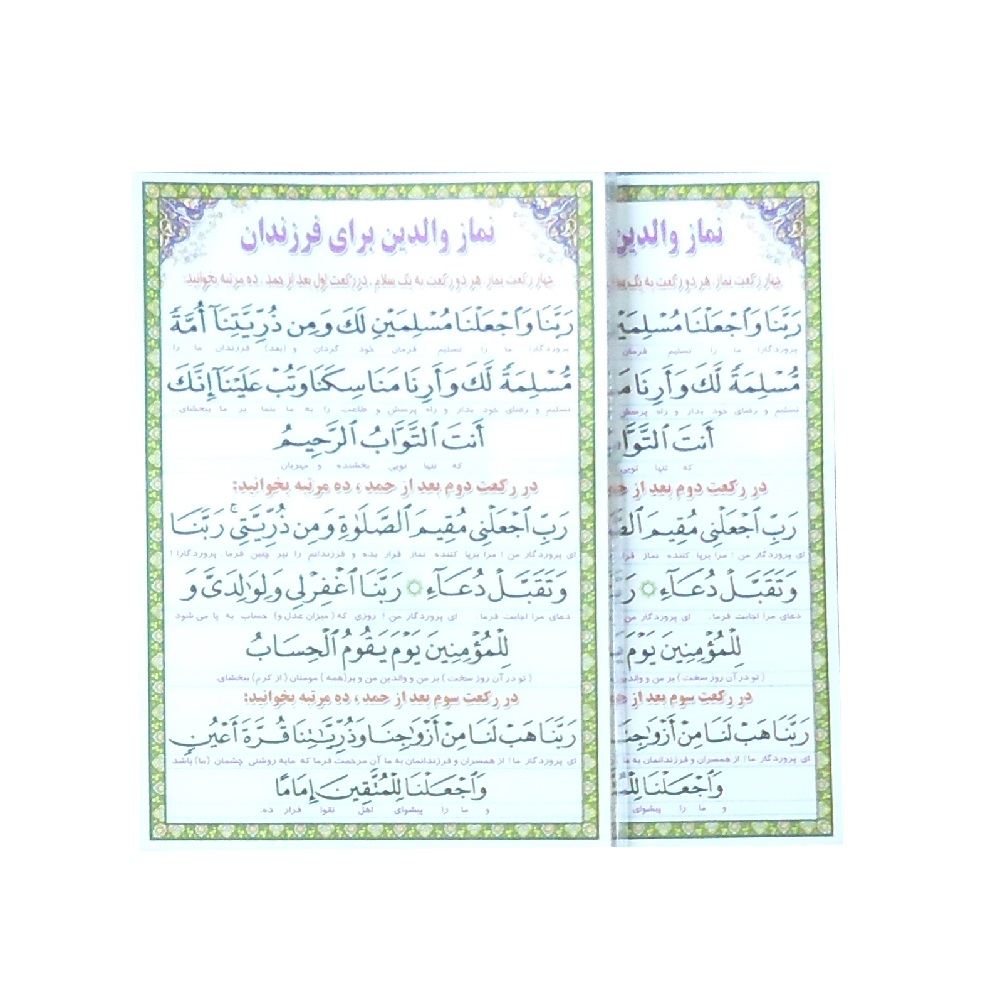 نماز والدین برای فرزندان
چهار رکعت نماز، هر دو رکعت به یک سلام، در رکعت اول بعد از حمد، ده مرتبه بخوانید:
رَبَّنَا وَٱجۡعَلۡنَا مُسۡلِمَيۡنِ لَكَ وَمِن ذُرِّيَّتِنَآ أُمَّةً
پروردگارا ما را تسلیم فرمان خود گردان و (بعد) فرزندان ما را
مُّسۡلِمَةً لَّكَ وَأَرِنَا مَنَاسِكَنَا وَتُبۡ عَلَيۡنَآ إِنَّكَ
تسلیم و رضای خود بدار و راه پرستش و طاعت را به ما بنما بر ما ببخشای
أَنتَ ٱلتَّوَّابُ ٱلرَّحِيمُ
که تنها تویی بخشنده و مهربان
در رکعت دوم بعد از حمد، ده مرتبه بخوانید:
رَبِّ ٱجۡعَلۡنِي مُقِيمَ ٱلصَّلَوٰةِ وَمِن ذُرِّيَّتِيۚ رَبَّنَا
ای پروردگار من! مرا برپا کننده نماز قرار بده و فرزندانم را نیز چنین فرما. پروردگارا!
وَتَقَبَّلۡ دُعَآءِ رَبَّنَا ٱغۡفِرۡلِي وَلِوَٰلِدَيَّ وَ
دعای مرا اجابت فرما. ای پروردگار من! روزی که (میزان عدل و) حساب به پا می شود
لِلۡمُؤۡمِنِينَ يَوۡمَ يَقُومُ ٱلۡحِسَابُ
(تو در آن روز سخت) بر من و والدین من و بر(همه) مومنان (از کرم) ببخشای.
در رکعت سوم بعد از حمد، ده مرتبه بخوانید:
رَبَّنَا هَبۡ لَنَا مِنۡ أَزۡوَٰجِنَا وَذُرِّيَّٰتِنَا قُرَّةَ أَعۡيُنٍ
ای پروردگار ما! از همسران و فرزندانمان به ما آن مرحمت فرما که مایه روشنی چشمان (ما) باشد
وَٱجۡعَلۡنَا لِلۡمُتَّقِينَ إِمَامًا
و ما را پیشوای اهل تقوا قرار ده.
نماز والدین
چهار رکعت نماز، هر دو رکعت به یک
رَبَّنَا وَٱجۡعَلۡنَا
پروردگارا ما را تسلیم فرمان
مُّسۡلِمَةً لَّكَ وَأَرِنَا
تسلیم و رضای خود بدار و راه پرستش
أَنتَ
که تنها تویی
در رکعت دوم بعد از
رَبِّ ٱجۡعَلۡنِي مُقِيمَ
ای پروردگار من! مرا برپا کننده نماز
وَتَقَبَّلۡ دُعَآءِ
دعای مرا اجابت فرما. ای پروردگار من!
لِلۡمُؤۡمِنِينَ يَوۡمَ
(تو در آن روز سخت) بر من و
در رکعت سوم بعد از
رَبَّنَا هَبۡ لَنَا مِنۡ أَزۡوَٰجِنَا
ای پروردگار ما! از همسران و فرزندانمان به
وَٱجۡعَلۡنَا
و ما را پیشوای